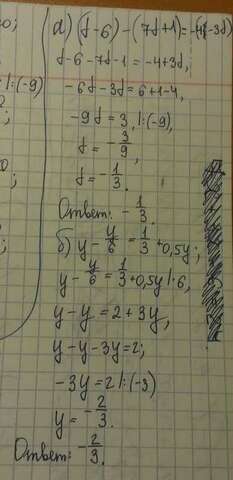 а) (d-6)-(7d+1)=-4(-3d)
d-6-7d-1=-4+3d,
-6d-3d=6+1-4,
-9d=3 |:(-9),
d=-3/9,
d=-1/3.
Ответ: -1/3.
б) y-y/6=1/3+0,5y;
y-y/6=1/3+0,5y |·6,
y-y=2+3y,
y-y-3y=2;
-3y=2 |:(-3)
y=-2/3.
Ответ: -2/3.
|:(-9)